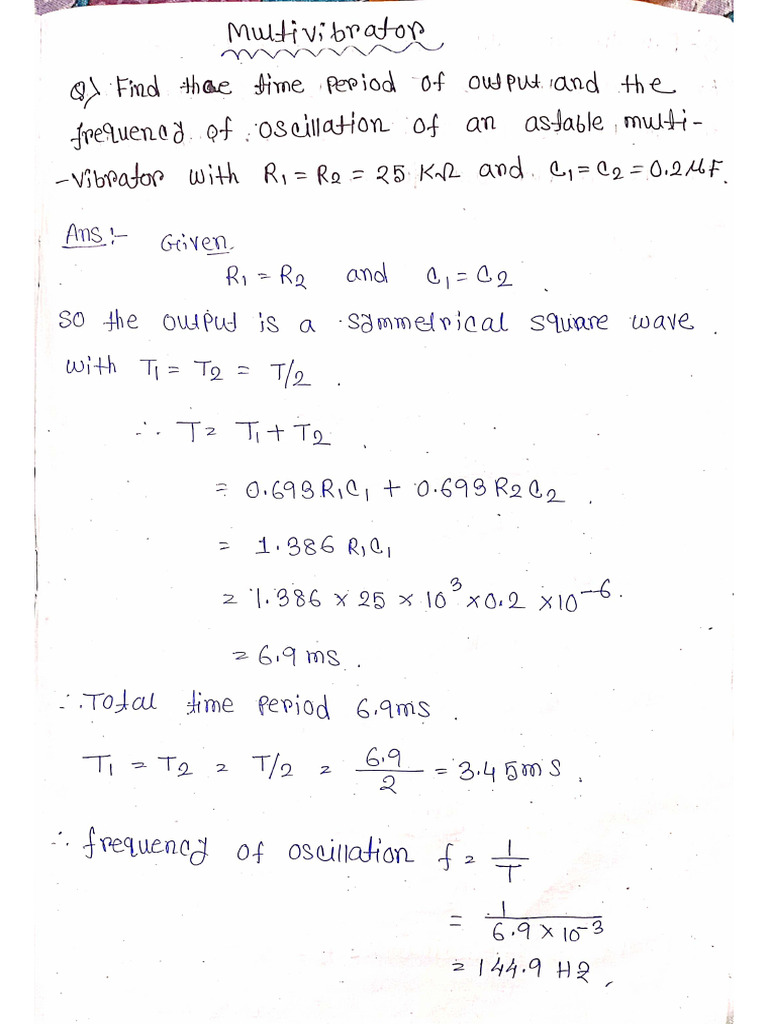 Multivibrator
Q) Find the time period of output and the
frequency of oscillation of an astable multi-
-vibrator with R1 = R2 = 25 KΩ and C1 = C2 = 0.2 μF.
Ans:- Given
R1 = R2 and C1 = C2 .
so the output is a symmetrical square wave .
with T1 = T2 = T/2 .
∴ T = T1 + T2 .
= 0.693 R1C1 + 0.693 R2C2 .
= 1.386 R1C1
= 1.386 × 25 × 10³ × 0.2 × 10⁻⁶.
= 6.9 ms .
∴ Total time period 6.9ms .
T1 = T2 = T/2 = 6.9/2 = 3.45ms .
∴ frequency of oscillation f = 1/T
= 1/6.9 × 10⁻³
= 144.9 Hz ,